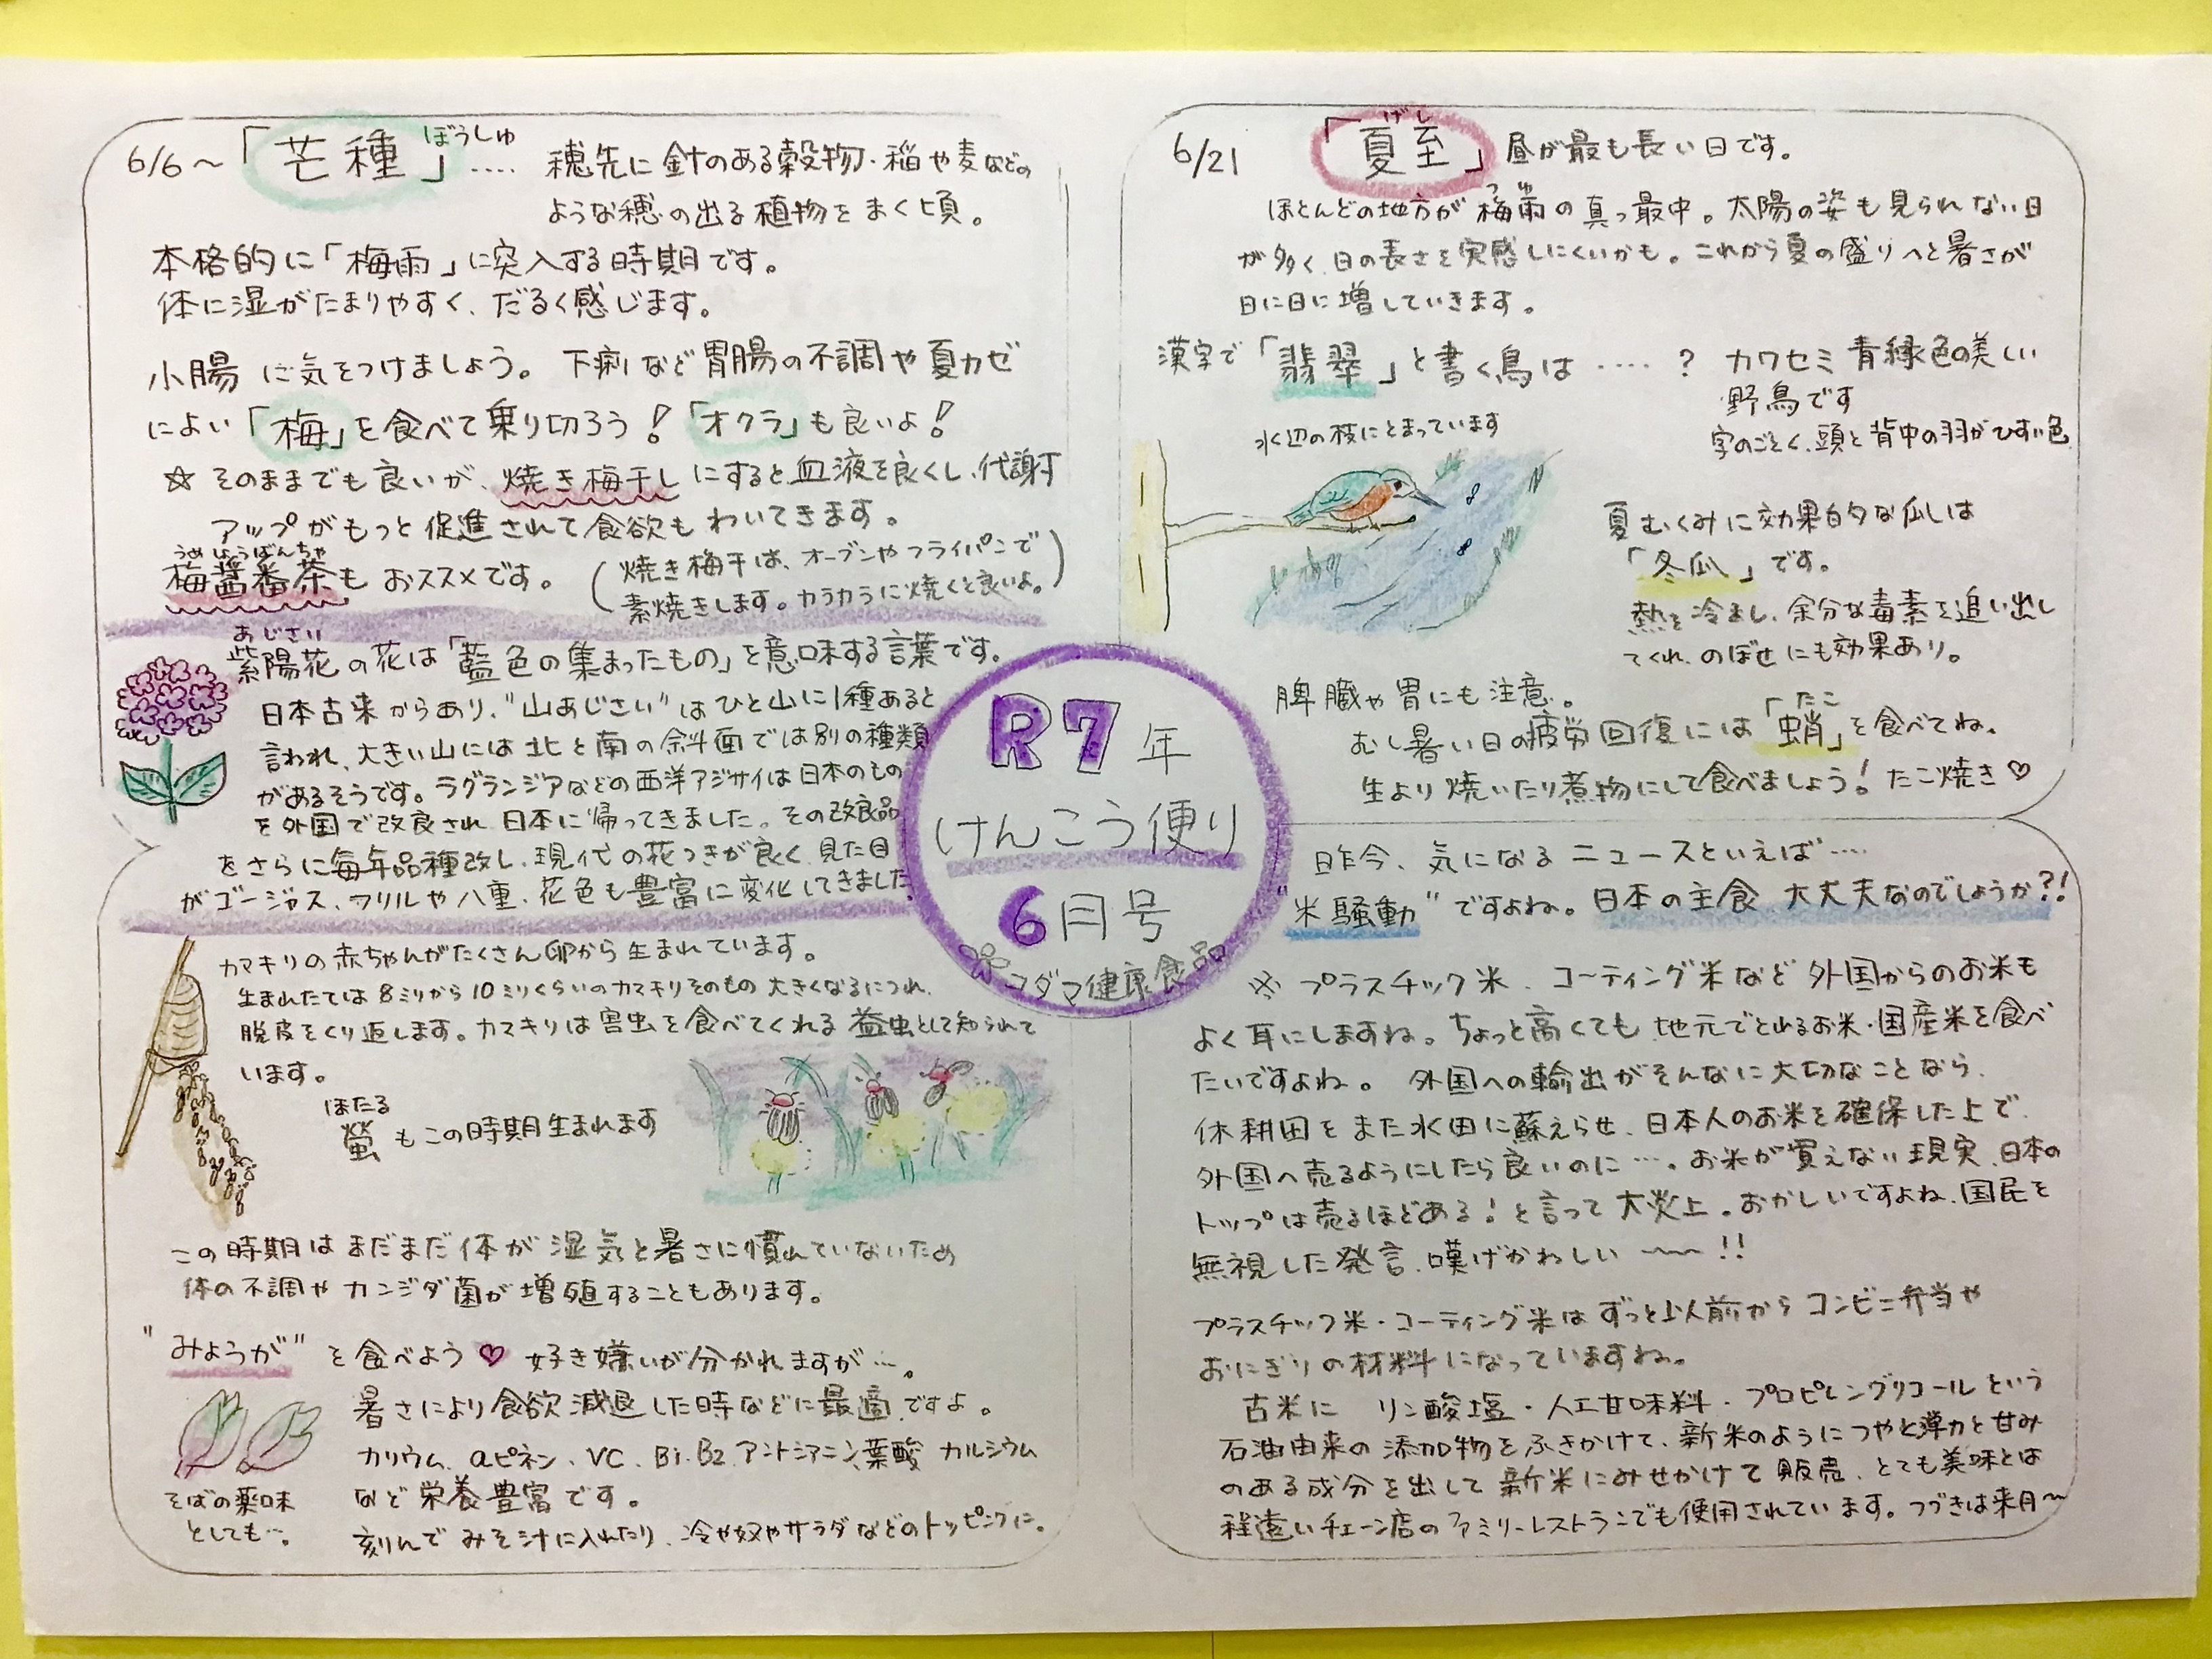 6/6～「芒種」ぼうしゅ‥‥ 穂先に針のある穀物・稲や麦などの
ような穂の出る植物をまく頃。
本格的に「梅雨」に突入する時期です。
体に湿がたまりやすく、だるく感じます。
小腸に気をつけましょう。下痢など胃腸の不調や夏カゼ
によい「梅」を食べて乗り切ろう！「オクラ」も良いよ！
☆そのままでも良いが、焼き梅干しにすると血液を良くし、代謝
アップがもっと促進されて食欲もわいてきます。
うめしょうばんちゃ
梅醤番茶もおススメです。
(焼き梅干は、オーブンやフライパンで
素焼きします。カラカラに焼くと良いよ。)
あじさい
紫陽花の花は「藍色の集まったもの」を意味する言葉です。
日本古来からあり、"山あじさい"はひと山に1種あると
言われ、大きい山には北と南の斜面では別の種類
があるそうです。ラグランジアなどの西洋アジサイは日本のもの
を外国で改良され、日本に帰ってきました。その改良品
をさらに毎年品種改し、現代の花つきが良く、見た目
がゴージャス、フリルや八重、花色も豊富に変化してきました。
カマキリの赤ちゃんがたくさん卵から生まれています。
生まれたては8ミリから10ミリくらいのカマキリそのもの 大きくなるにつれ、
脱皮をくり返します。カマキリは害虫を食べてくれる益虫として知られて
います。
ほたる
螢もこの時期生まれます
この時期はまだまだ体が湿気と暑さに慣れていないため
体の不調やカンジダ菌が増殖することもあります。
"みょうが"を食べよう♡ 好き嫌いが分かれますが…。
暑さにより食欲減退した時などに最適ですよ。
カリウム、αピネン、VC、B1、B2、アントシアニン、葉酸 カルシウム
など栄養豊富です。
刻んでみそ汁に入れたり、冷や奴やサラダなどのトッピングに。
そばの薬味
としても…。
R7年
けんこう便り
6月号
コダマ健康食品
6/21「夏至」げし 昼が最も長い日です。
ほとんどの地方が梅雨つゆの真っ最中。太陽の姿も見られない日
が多く、日の長さを実感しにくいかも。これから夏の盛りへと暑さが
日に日に増していきます。
漢字で「翡翠」と書く鳥は‥‥？ カワセミ 青緑色の美しい
野鳥です
字のごとく、頭と背中の羽がひすい色
水辺の枝にとまっています
夏むくみに効果的な瓜は
「冬瓜」です。
熱を冷まし、余分な毒素を追い出し
てくれ、のぼせにも効果あり。
脾臓や胃にも注意。
むし暑い日の疲労回復には「蛸」たこを食べてね。
生より焼いたり煮物にして食べましょう！たこ焼き♡
昨今、気になるニュースといえば‥‥
"米騒動"ですよね。日本の主食 大丈夫なのでしょうか?!
※プラスチック米、コーティング米など外国からのお米も
よく耳にしますね。ちょっと高くても地元でとれるお米・国産米を食べ
たいですよね。外国への輸出がそんなに大切なことなら、
休耕田をまた水田に蘇えらせ、日本人のお米を確保した上で、
外国へ売るようにしたら良いのに…。お米が買えない現実、日本の
トップは売るほどある！と言って大炎上。おかしいですよね、国民を
無視した発言、嘆げかわしい〜〜!!
プラスチック米・コーティング米はずっと以前からコンビニ弁当や
おにぎりの材料になっていますね。
古米に リン酸塩・人工甘味料・プロピレングリコールという
石油由来の添加物をふきかけて、新米のようにつやと弾力と甘み
のある成分を出して新米にみせかけて販売、とても美味とは
程遠いチェーン店のファミリーレストランでも使用されています。つづきは来月〜